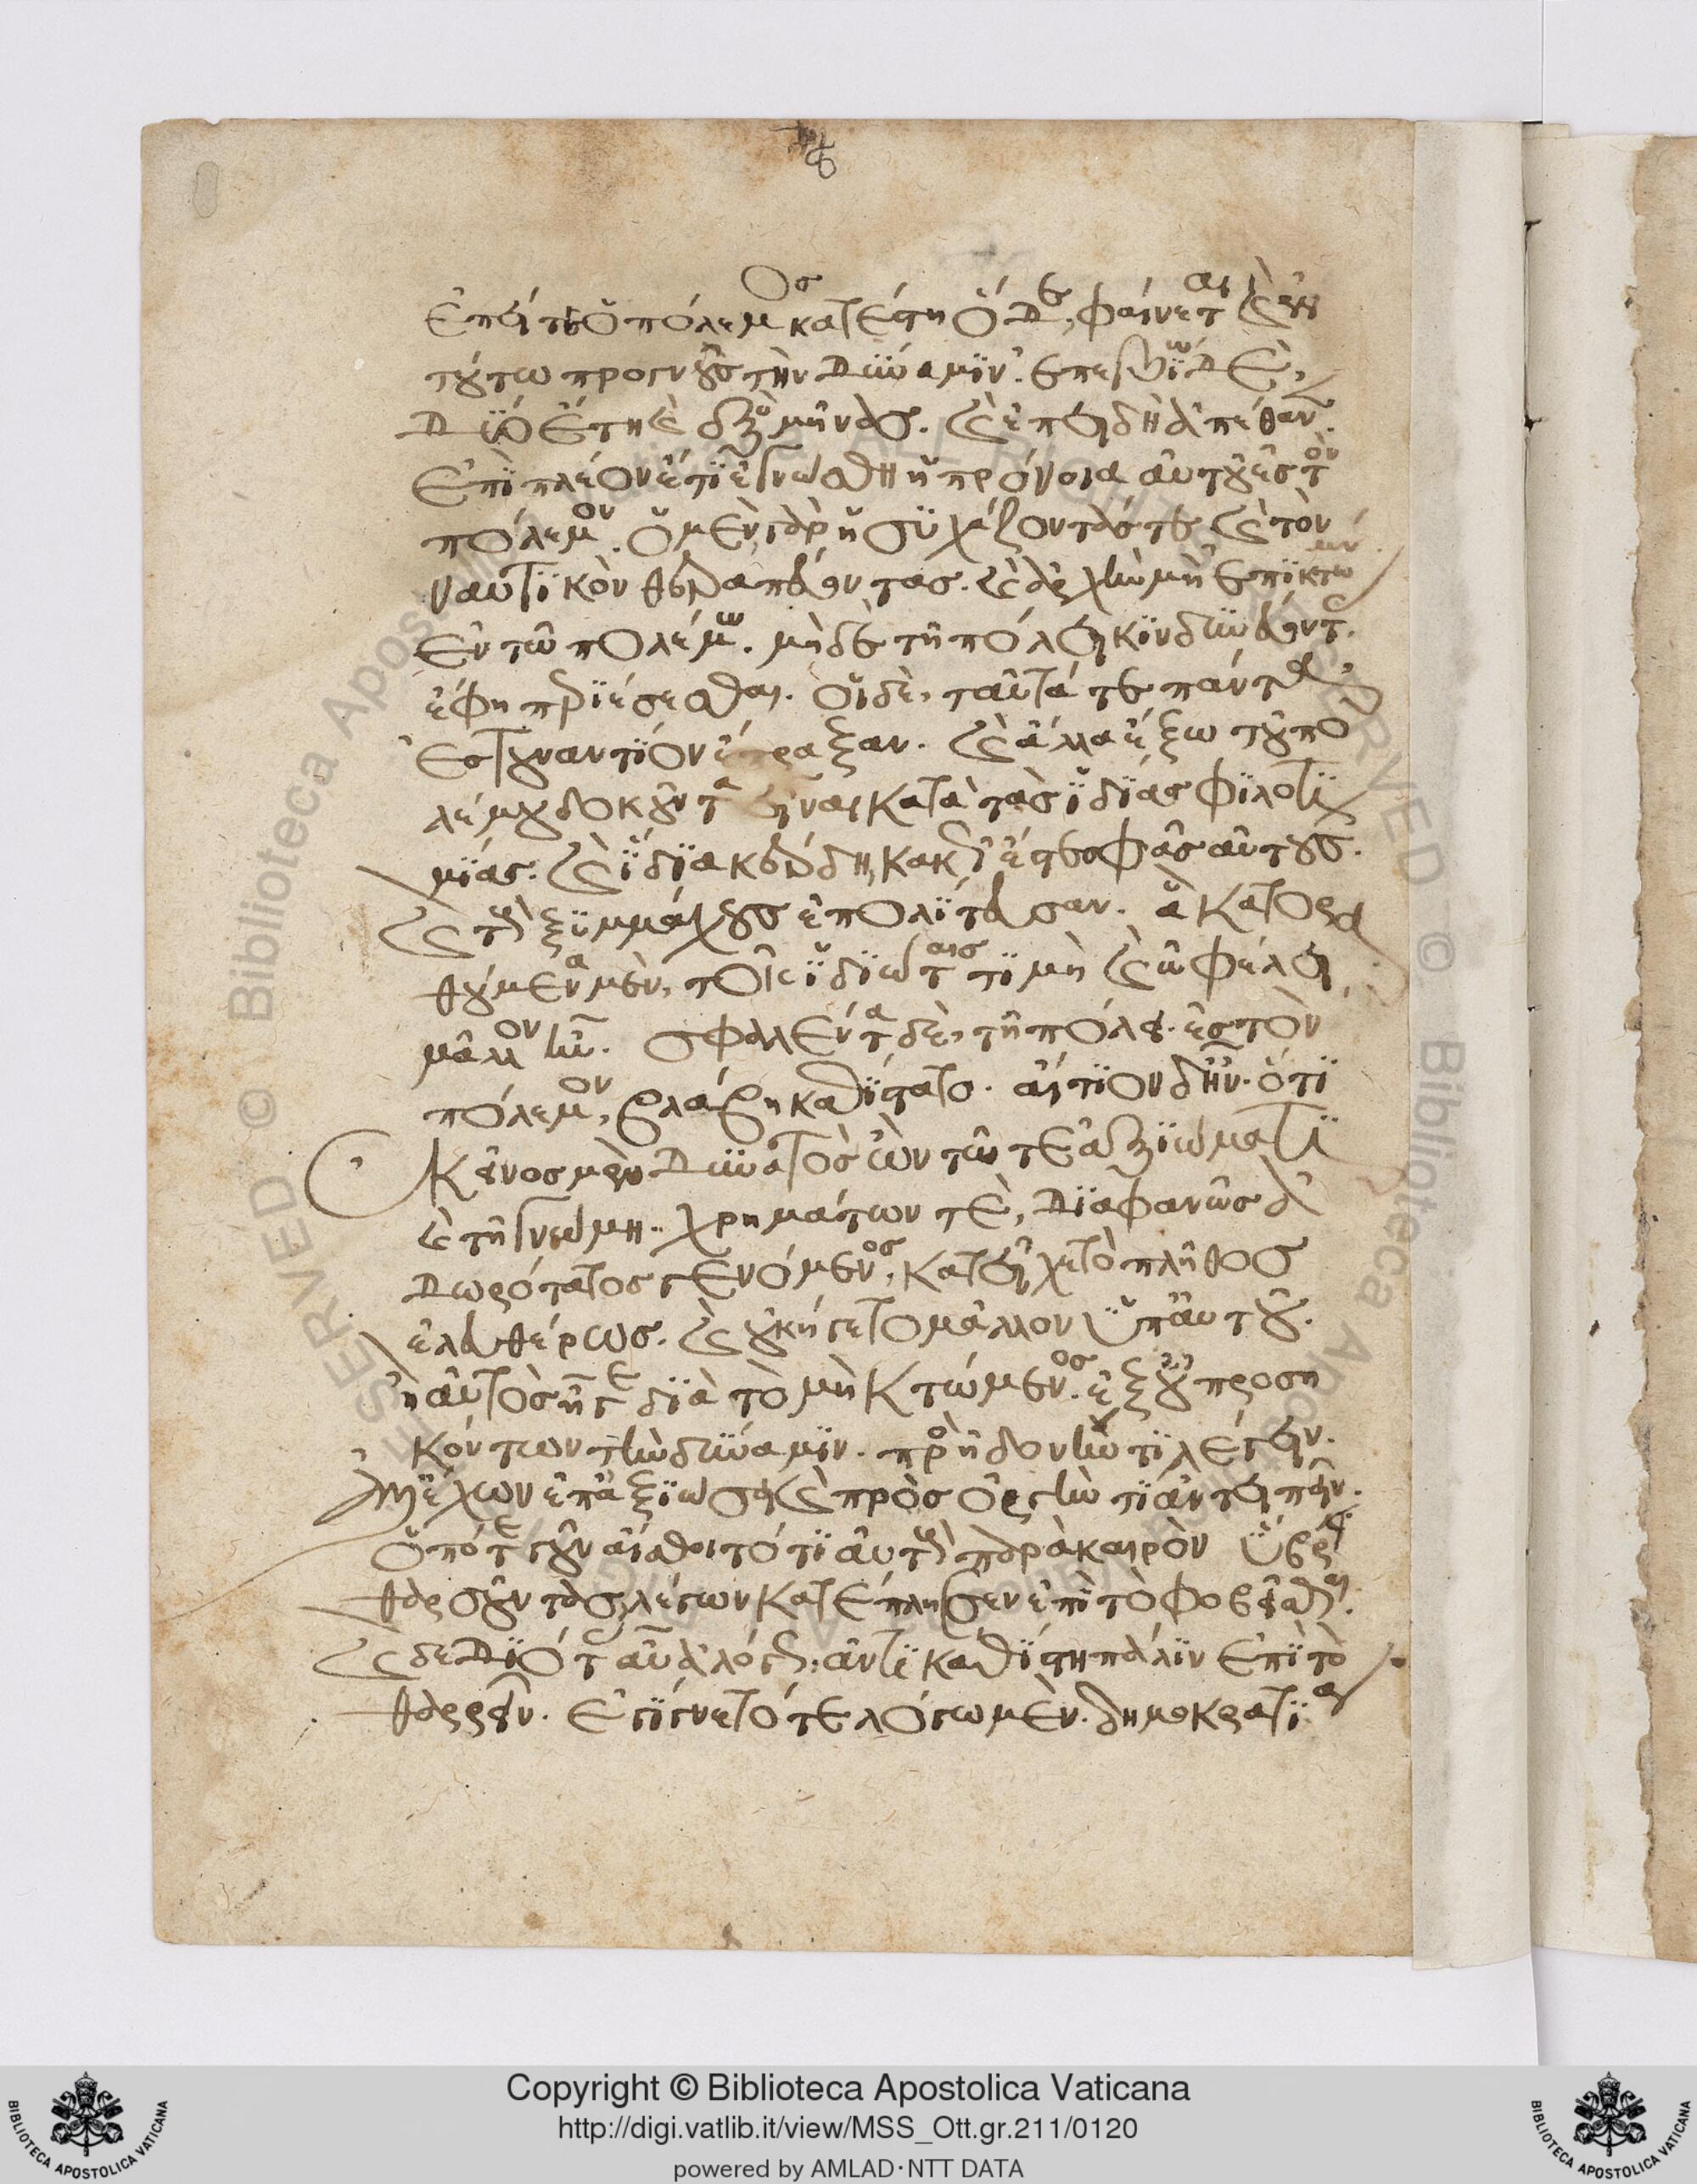 ἐπεί τε ὁ πόλεμος κατέστη ὁ δὲ, φαίνεται καὶ ἐν
τούτω προγνοὺς τὴν δύναμιν. ἐπεβίω δὲ,
δύο ἔτη καὶ ἓξ μῆνας. καὶ ἐπειδὴ ἀπέθανεν.
ἐπὶ πλέον ἔτι ἐγνώσθη ἡ πρόνοια αὐτοῦ ἐς τὸν
πόλεμον. ὁ μὲν γὰρ ἡσυχάζοντάς τε καὶ τὸν
ναυτικὸν θεραπεύοντας. καὶ ἀρχὴν μὴ ἐπικτωμέν
ἐν τῶ πολέμω. μὴδε τῆ πόλει κινδυνεύοντας
ἔφη περιέσεσθαι. οἱ δὲ, ταῦτά τε πάντα
ἐς τουναντίον ἔπραξαν. καὶ ἄλλα ἔξω τοῦ πο
λέμου δοκοῦντα εἶναι κατὰ τὰς ἰδίας φιλοτι
μίας. καὶ ἴδια κέρδη, κακῶς ἔς τε σφᾶς αὐτοὺς.
καὶ τοὺς ξυμμάχους ἐπολίτευσαν. ἃ κατορ
θούμενα μὲν, τοῖς ἰδιώταις τιμὴ καὶ ὠφέλεια
μᾶλλον ἦν. σφαλέντα δὲ, τῆ πόλει ἐς τὸν
πόλεμον, βλάβη καθίστατο. αἴτιον δ' ἦν. ὅτι
κεῖνος μὲν δυνατὸς ὢν τῶ τε ἀξιώματι
καὶ τῆ γνώμη. χρημάτων τὲ, διαφανῶς ἀ
δωρότατος γενόμενος, κατεῖχε τὸ πλῆθος
ἐλευθέρως. καὶ οὐκ ἤγετο μᾶλλον ὑπ' αὐτοῦ.
ἢ αὐτὸς ἦγε διὰ τὸ μὴ κτώμενος ἐξ οὐ προση
κόντων τὴν δύναμιν. πρὸς ἡδονήν τι λέγειν.
ἀλλ' ἔχων ἐπ' ἀξιώσει καὶ πρὸς ὀργήν τι ἀντειπεῖν.
ὁπότε γοῦν αἴσθοιτό τι αὐτοὺς παρὰ καιρὸν ὕβρει
θαρσοῦντας, λέγων κατέπλησσεν ἐπὶ τὸ φοβεῖσθαι.
καὶ δεδιότας αὖ ἀλόγως, ἀντικαθίστη πάλιν ἐπὶ τὸ
θαρρεῖν. ἐγίγνετό τε λόγω μὲν. δημοκρατία
Copyright © Biblioteca Apostolica Vaticana
http://digi.vatlib.it/view/MSS_Ott.gr.211/0120
powered by AMLAD·NTT DATA